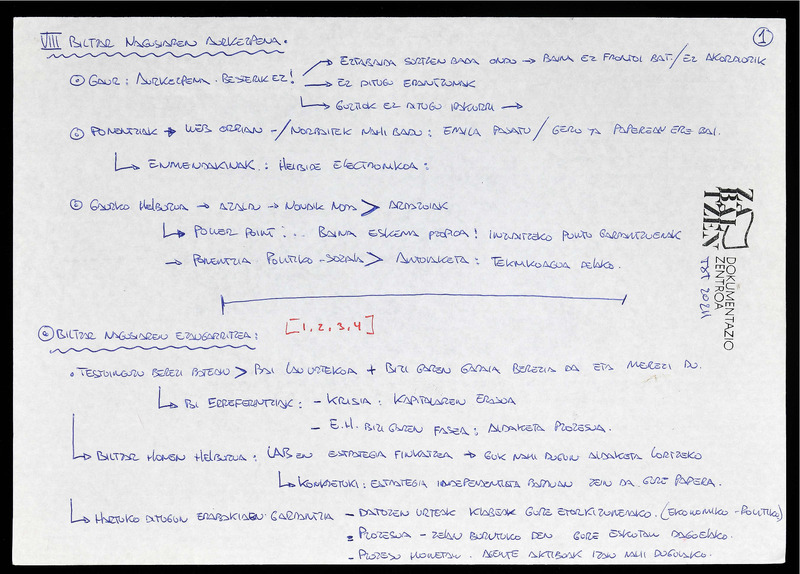 VIII BILTZAR NAGUSIAREN AURKEZPENA.
1
EZTABAIDA SORTZEN BADA ONDO → BAINA EZ FRONTOI BAT. / EZ AKORDIORIK
GAUR: AURKEZPENA. BESTERIK EZ!
EZ DITUGU ERANTZUNAK
GUZTIOK EZ DITUGU IRAKURRI →
PONENTZIAK → WEB ORRIAN - / NORBAITEK NAHI BADU: EMAILA PASATU / GERO TA PAPEREAN ERE BAI.
ENMENDAKINAK: HELBIDE ELEKTRONIKOA:
GAURKO HELBURUA → AZALDU → NONDIK NORA > ARDATZAK
POWER POINT: ... BAINA ESKEMA PROPIOA! INZIDITZEKO PUNTU GARRANTZITSUENAK
→ PONENTZIA POLITIKO-SOZIALA > ANTOLAKETA: TEKNIKOAGOA DELAKO.
[1, 2, 3, 4]
BILTZAR NAGUSIAREN EZAUGARRITZEA:
• TESTUINGURU BEREZI BATEAN > BAI LAU URTEKOA + BIZI GAREN GARAIA BEREZIA DA ETA MEREZI DU.
BI ERREFERENTZIAK: - KRISIA: KAPITALAREN ERASOA
- E.H. BIZI GAREN FASEA: ALDAKETA PROZESUA.
BILTZAR HONEN HELBURUA: LABEN ESTRATEGIA FINKATZEA → GUK NAHI DUGUN ALDAKETA LORTZEKO
KONKRETUKI: ESTRATEGIA INDEPENDENTISTA BARRUAN ZEIN DA GURE PAPERA.
HARTUKO DITUGUN ERABAKIEN GARRANTZIA - DATOZEN URTEAK KLABEAK GURE ETORKIZUNERAKO. (EKONOMIKO-POLITIKO)
= PROZESUA - ZELAN BURUTUKO DEN GURE ESKUTAN DAGOELAKO.
- PROZESU HONETAN. AGENTE AKTIBOAK IZAN NAHI DUGULAKO.
ZABALTZEN
DOKUMENTAZIO
ZENTROA
TXT 20211